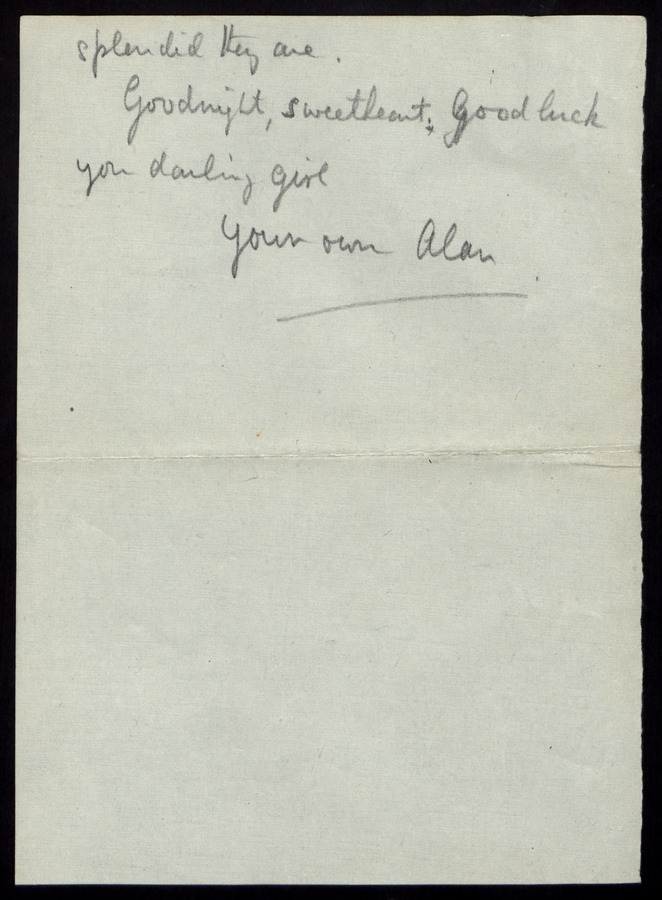 splendid they are.
Goodnight, sweetheart; Good luck
you darling girl
Your own Alan